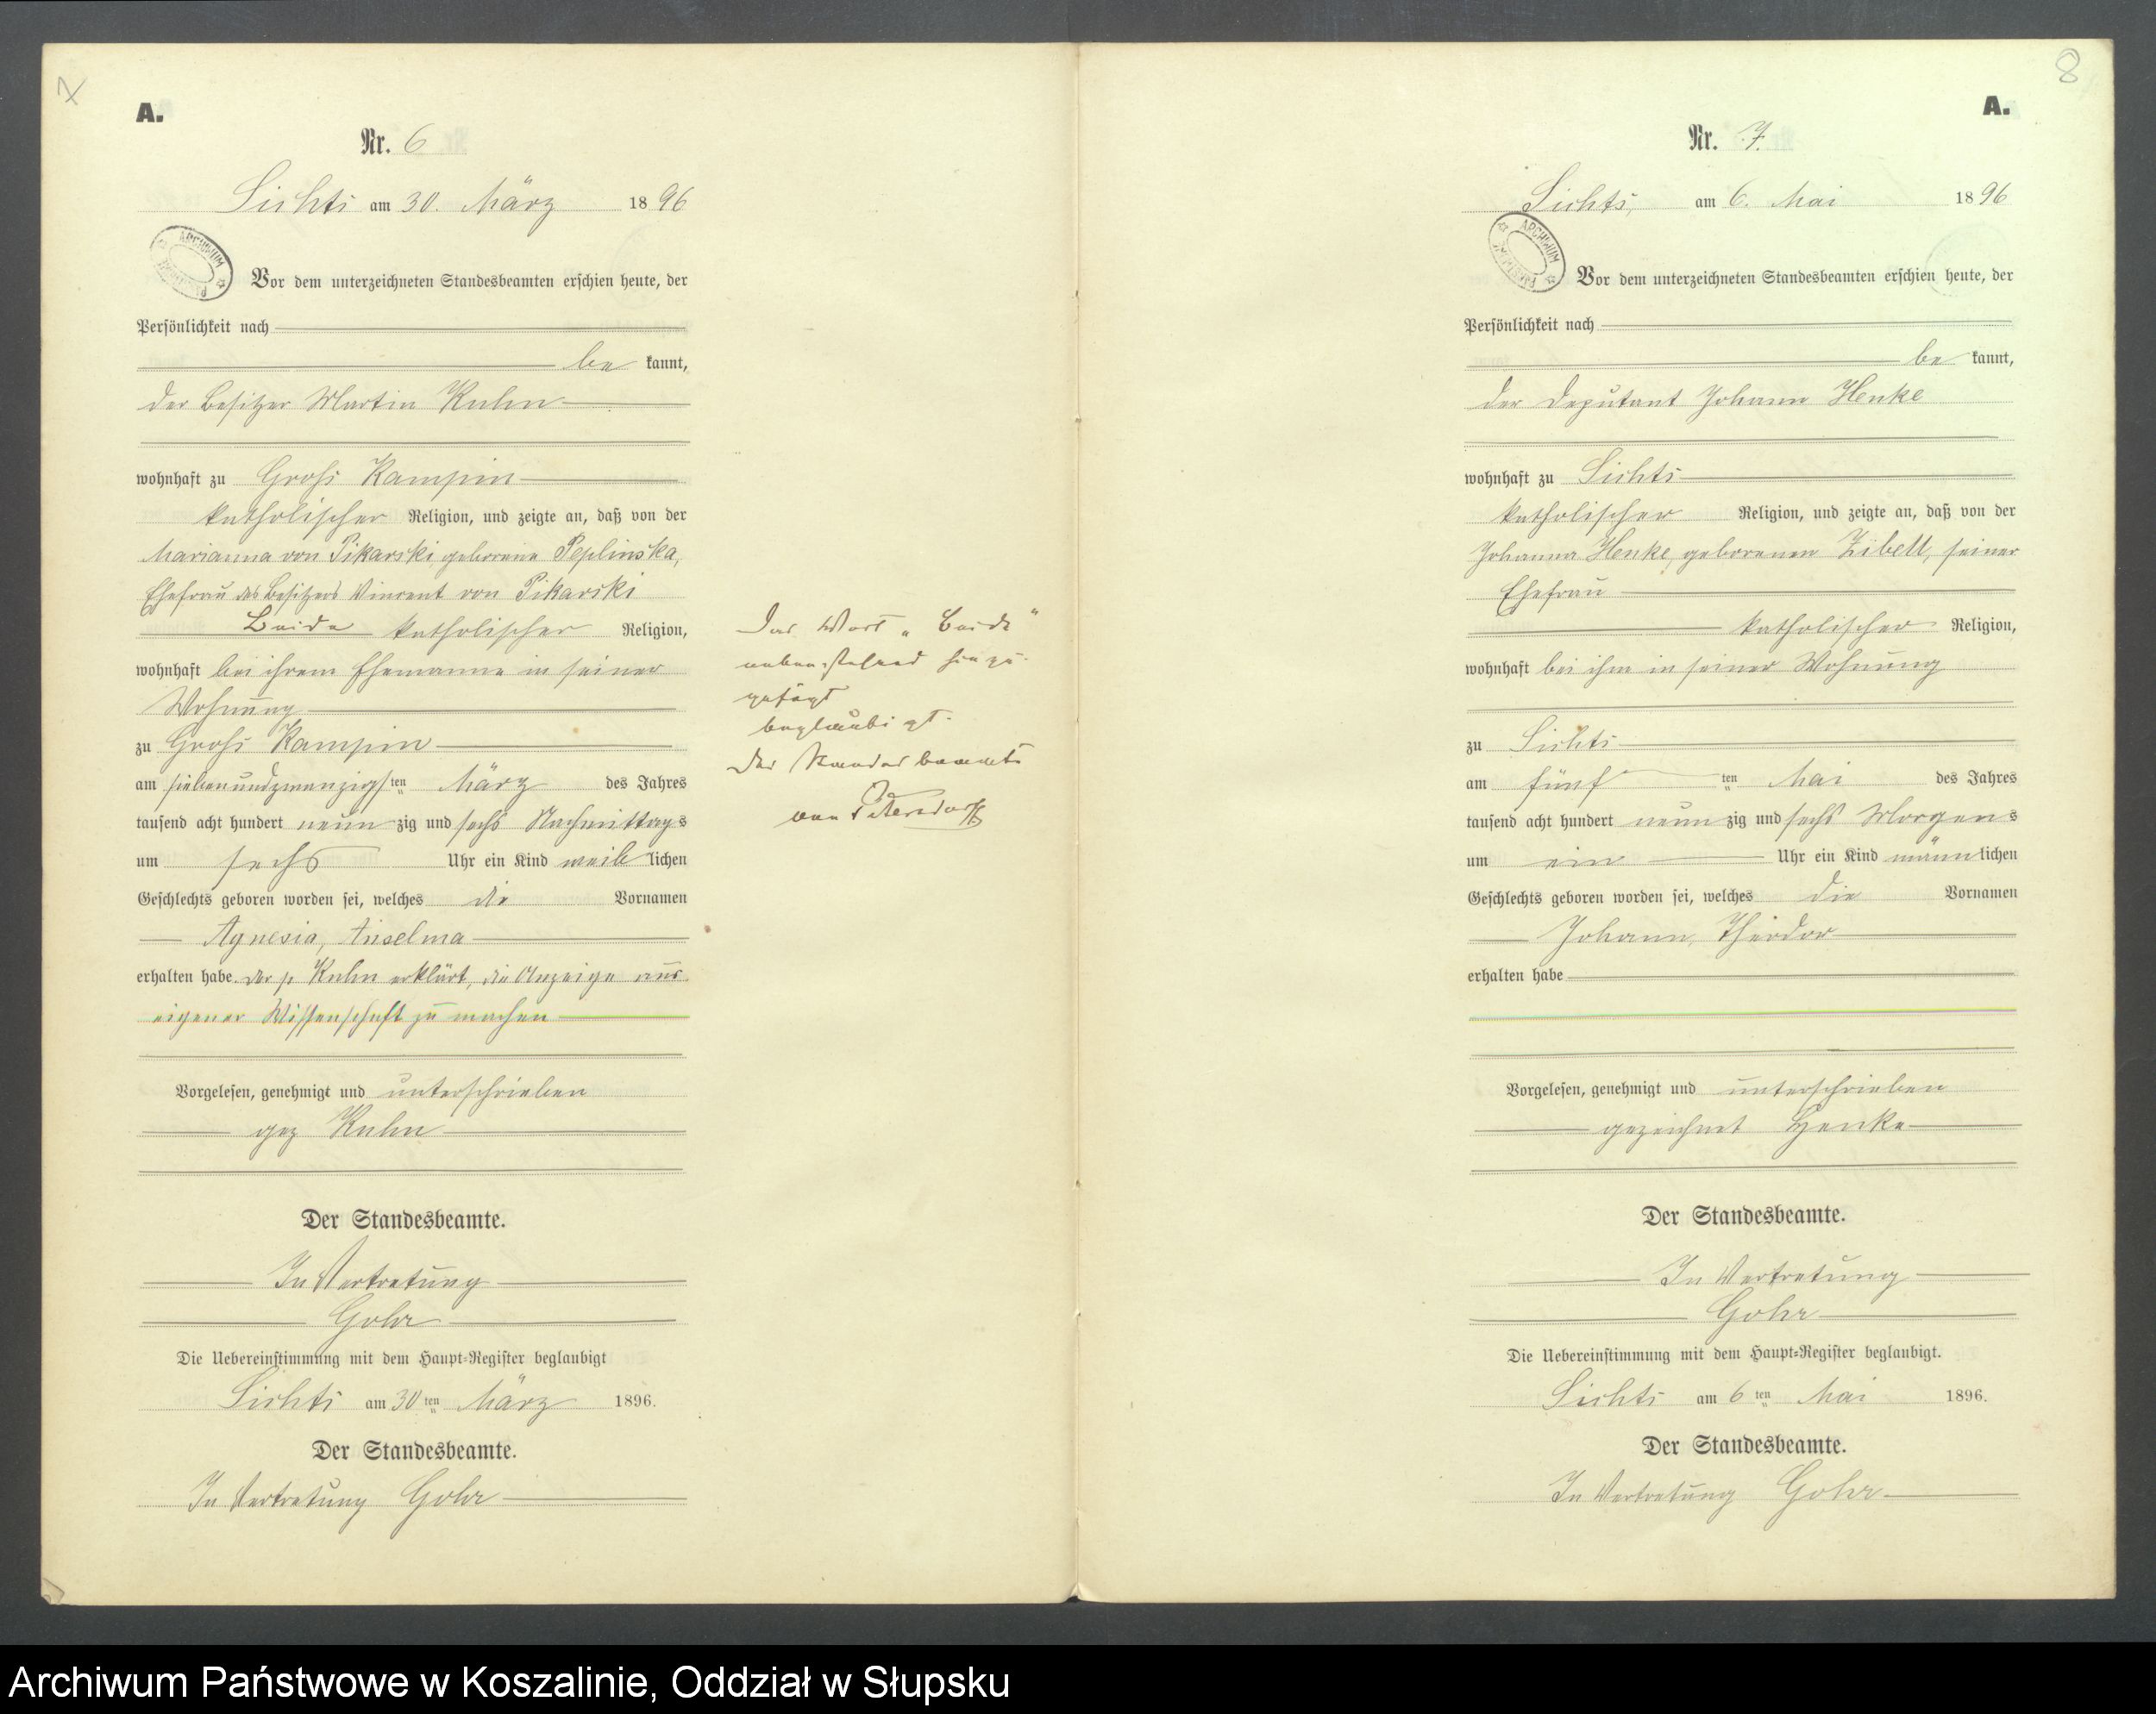 A.
Nr. 6
Lichts am 30. März 1896
ARCHIWUM
Vor dem unterzeichneten Standesbeamten erschien heute, der
Persönlichkeit nach
be kannt,
der Besitzer Martin Kuhn
wohnhaft zu Groß Kampin
katholischer Religion, und zeigte an, daß von der
Marianna von Pikarski, geborene Peplinska,
Ehefrau des Besitzers Vincent von Pikarski
Beide katholischer Religion,
wohnhaft bei ihrem Ehemanne in seiner
Wohnung
zu Groß Kampin
am siebenundzwanzigsten März des Jahres
tausend acht hundert neunzig und sechs Nachmittags
um sechs Uhr ein Kind weiblichen
Geschlechts geboren worden sei, welches die Vornamen
Agnesia, Anselma
erhalten habe. Der p. Kuhn erklärt, die Anzeige aus
eigener Wissenschaft zu machen
Vorgelesen, genehmigt und unterschrieben
gez Kuhn
Der Standesbeamte.
In Vertretung
Gohr
Die Uebereinstimmung mit dem Haupt-Register beglaubigt
Lichts am 30 ten März 1896.
Der Standesbeamte.
In Vertretung Gohr
Das Wort „Beide"
nebenstehend hinzu-
gefügt
beglaubigt.
Der Standesbeamte
von Petersdorff
8
A.
Nr. 7.
Lichts, am 6. Mai 1896
ARCHIWUM
Vor dem unterzeichneten Standesbeamten erschien heute, der
Persönlichkeit nach
be kannt,
der Deputant Johann Henke
wohnhaft zu Lichts
katholischer Religion, und zeigte an, daß von der
Johanna Henke, geborenen Zibell, seiner
Ehefrau
katholischer Religion,
wohnhaft bei ihm in seiner Wohnung
zu Lichts
am fünf ten Mai des Jahres
tausend acht hundert neunzig und sechs Morgens
um ein Uhr ein Kind männlichen
Geschlechts geboren worden sei, welches die Vornamen
Johann, Theodor
erhalten habe
Vorgelesen, genehmigt und unterschrieben
gezeichnet Henke
Der Standesbeamte.
In Vertretung
Gohr
Die Uebereinstimmung mit dem Haupt-Register beglaubigt.
Lichts am 6 ten Mai 1896.
Der Standesbeamte.
In Vertretung Gohr
Archiwum Państwowe w Koszalinie, Oddział w Słupsku